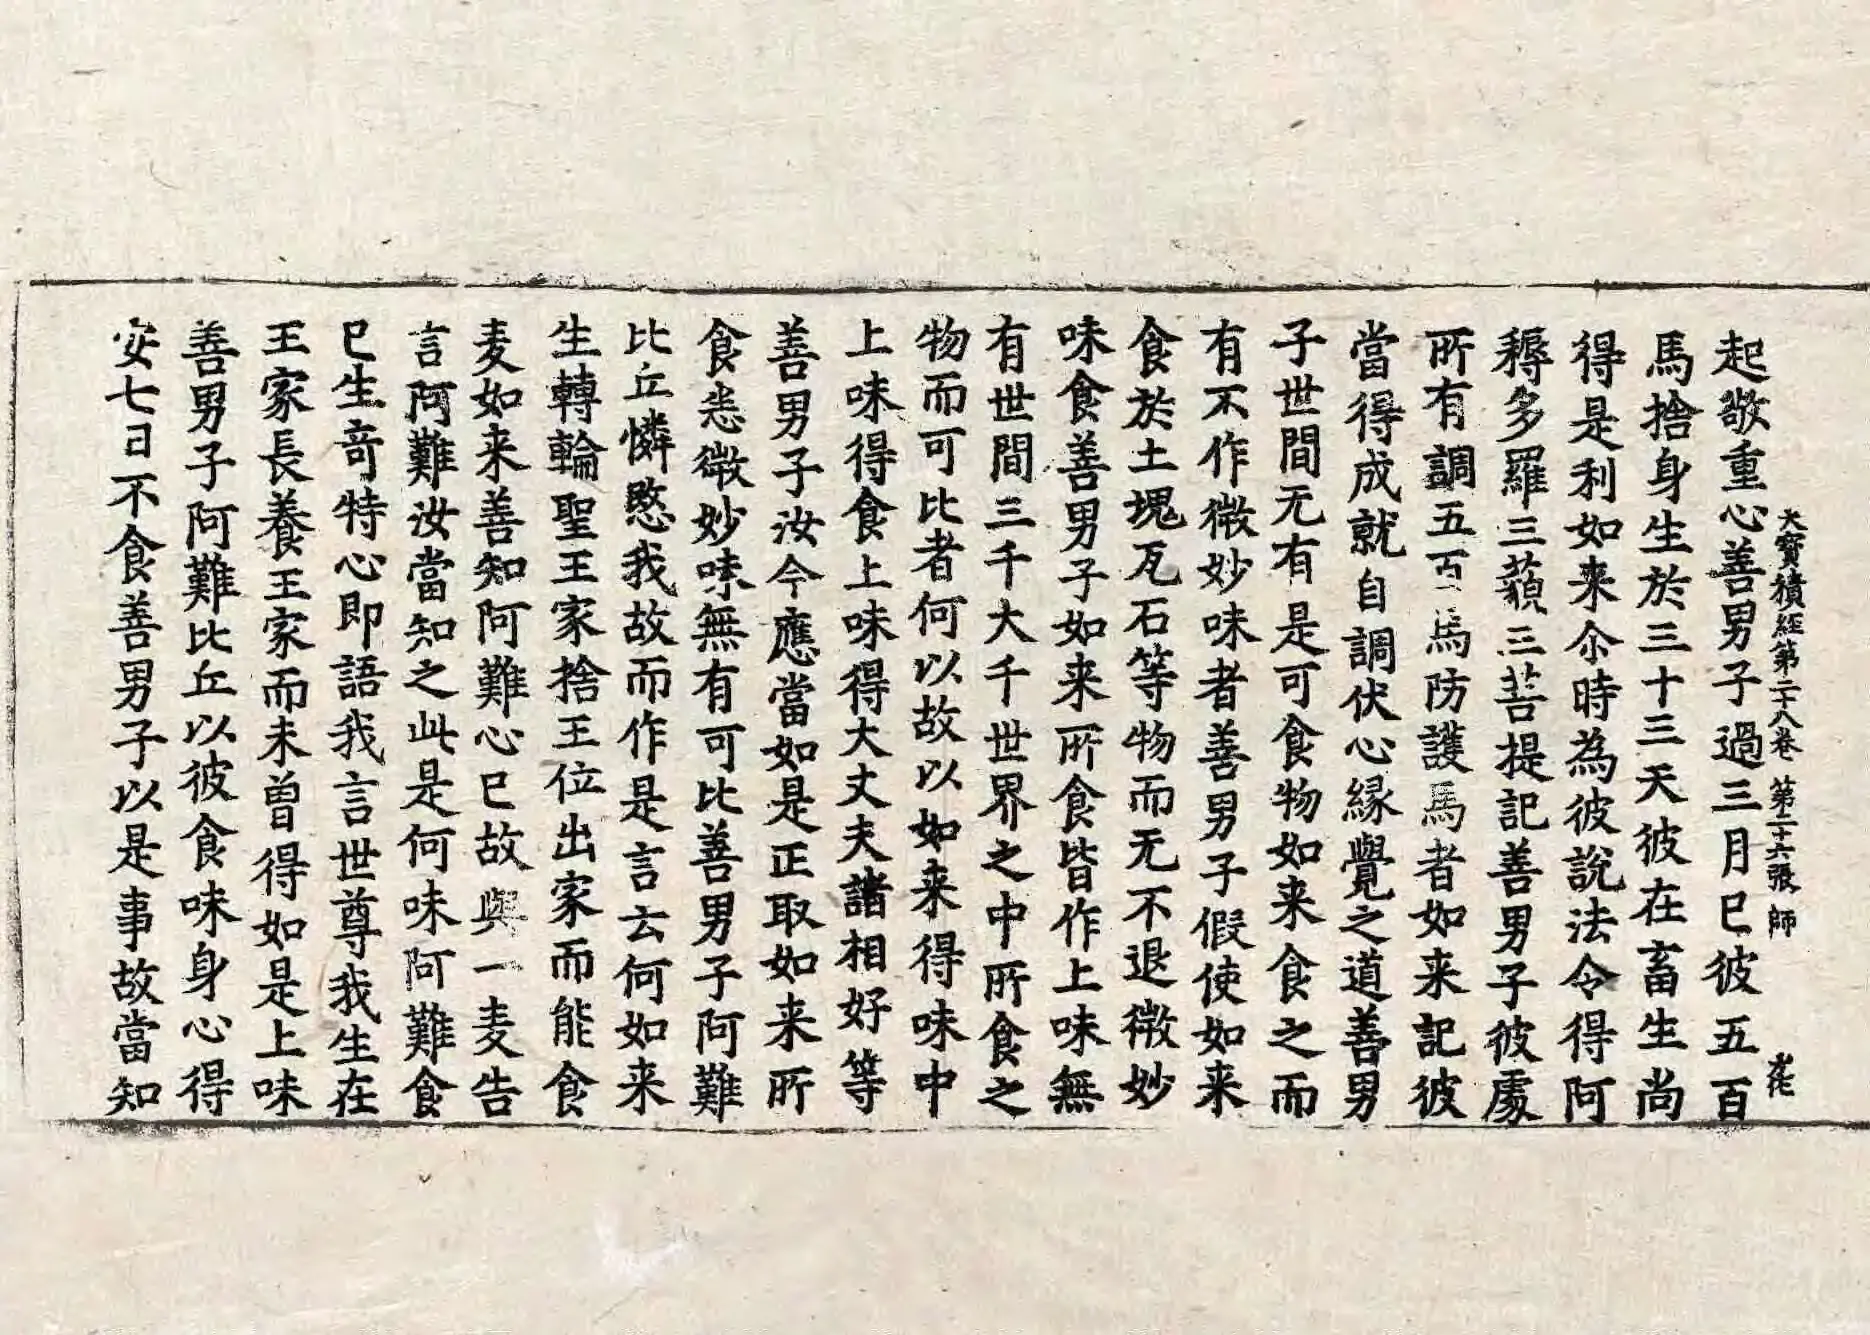 大寶積經第二十八卷 第二十六張 師
起敬重心善男子過三月已彼五百
馬捨身生於三十三天彼在畜生尚
得是利如来尒時為彼說法令得阿
耨多羅三藐三菩提記善男子彼處
所有調五百馬防護馬者如来記彼
當得成就自調伏心緣覺之道善男
子世間无有是可食物如来食之而
有不作微妙味者善男子假使如来
食於土塊瓦石等物而无不退微妙
味食善男子如来所食皆作上味無
有世間三千大千世界之中所食之
物而可比者何以故以如来得味中
上味得食上味得大丈夫諸相好等
善男子汝今應當如是正取如来所
食恙微妙味無有可比善男子阿難
比丘憐愍我故而作是言云何如来
生轉輪聖王家捨王位出家而能食
麦如来善知阿難心已故與一麦告
言阿難汝當知之此是何味阿難食
已生奇特心即語我言世尊我生在
王家長養王家而未曾得如是上味
善男子阿難比丘以彼食味身心得
安七日不食善男子以是事故當知